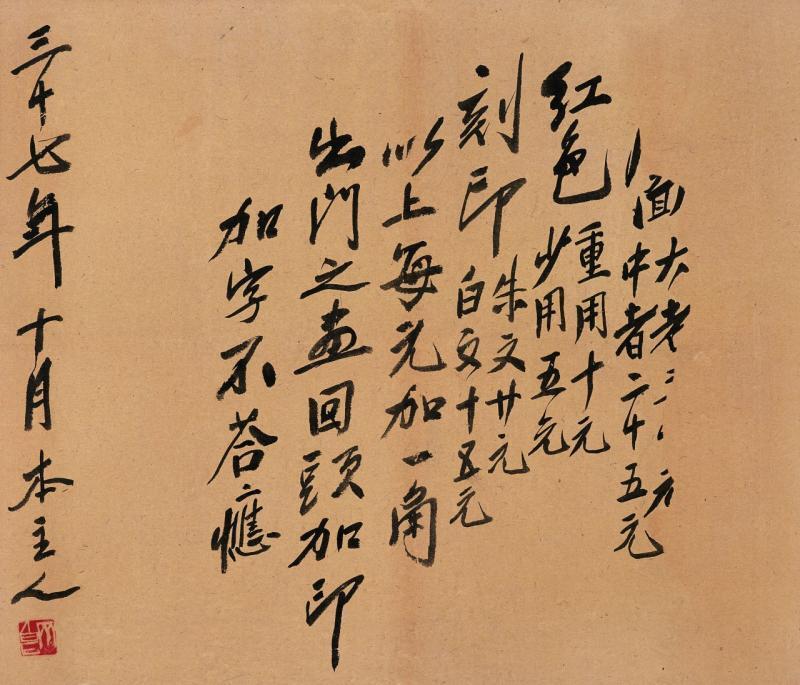 面大者
中者二十五元
红色重用十元
少用五元
刻印朱文廿元
白文十五元
以上每元加一角
出門之畫回頭加印
加字不荅應
三十七年十月本主人